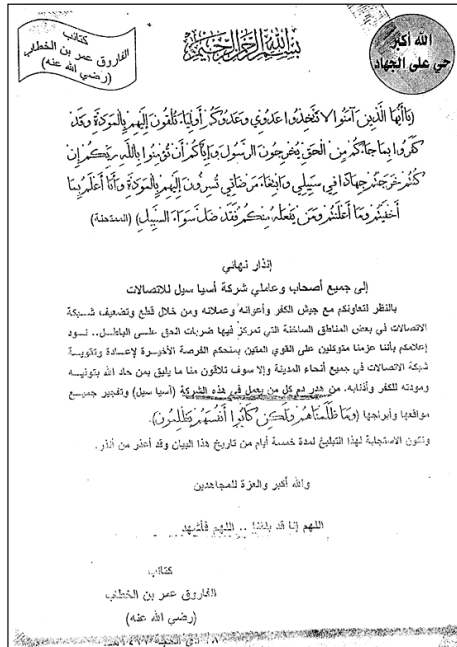 كتائب
الفاروق عمر بن الخطاب
(رضي الله عنه)
بسم الله الرحمن الرحيم
الله أكبر
حي على الجهاد
(يا أيها الذين آمنوا لا تتخذوا عدوي وعدوكم أولياء تلقون إليهم بالمودة وقد
كفروا بما جاءكم من الحق يخرجون الرسول وإياكم أن تؤمنوا بالله ربكم إن
كنتم خرجتم جهادا في سبيلي وابتغاء مرضاتي تسرون إليهم بالمودة وأنا أعلم بما
أخفيتم وما أعلنتم ومن يفعله منكم فقد ضل سواء السبيل) (الممتحنة)
إنذار نهائي
إلى جميع أصحاب وعاملي شركة آسيا سيل للاتصالات
بالنظر لتعاونكم مع جيش الكفر وأعوانه وعملائه ومن خلال قطع وتضعيف شبكة
الاتصالات في بعض المناطق الساخنة التي تمركز فيها ضربات الحق على الباطل.. نود
إعلامكم بأننا عزمنا متوكلين على القوي المتين بمنحكم الفرصة الأخيرة لإعادة وتقوية
شبكة الاتصالات في جميع أنحاء المدينة وإلا سوف تلاقون منا ما يليق بمن حاد الله بتوليه
ومودته للكفر وأذنابه. من هدر دم كل من يعمل في هذه الشركة (آسيا سيل) وتفجير جميع
مواقعها وأبراجها (وما ظلمناهم ولكن كانوا أنفسهم يظلمون).
وتكون الاستجابة لهذا التبليغ لمدة خمسة أيام من تاريخ هذا البيان وقد أعذر من أنذر.
والله أكبر والعزة للمجاهدين
اللهم إنا قد بلغنا .. اللهم فأشهد
كتائب
الفاروق عمر بن الخطاب
(رضي الله عنه)